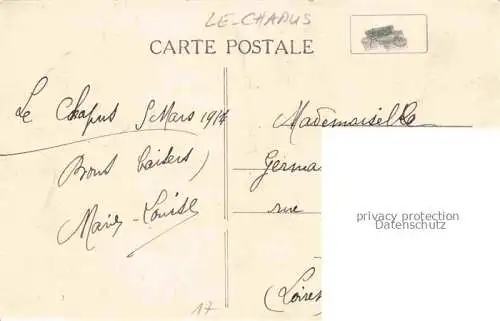 LE-CHAPUS
CARTE POSTALE
Le Chapus 5 Mars 1914
Bons baisers
Marie-Louise
Mademoiselle
Germa
rue
(Loire
privacy protection
Datenschutz
17